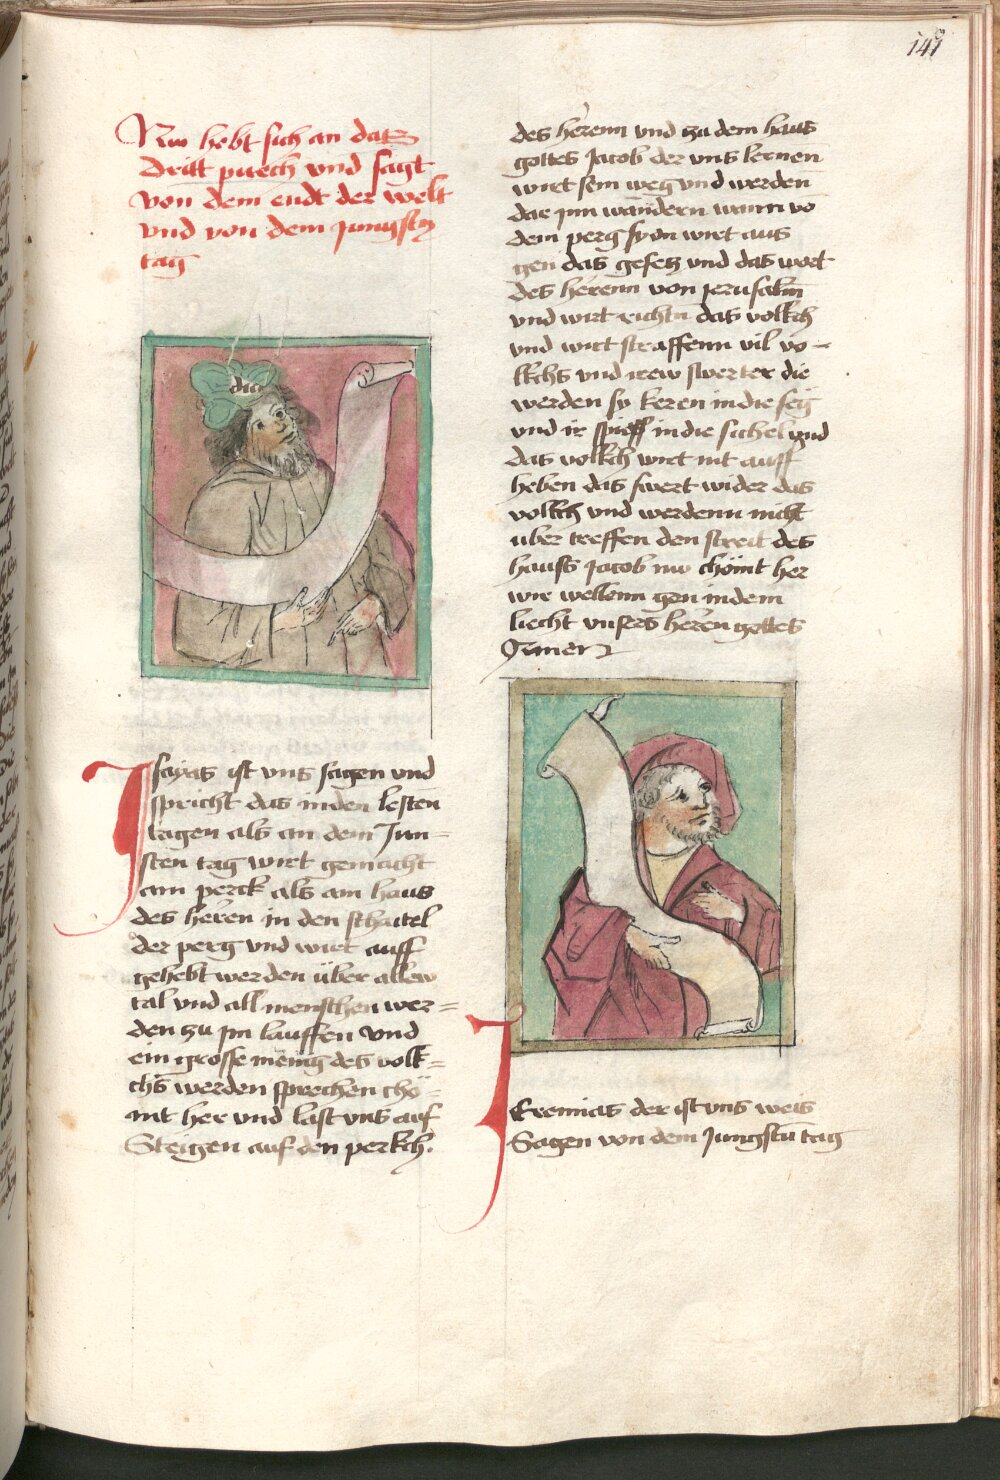 141
Nw hebt sich an datz
dritt puech vnd sagt
von dem endt der welt
vnd von dem jungstn
tag
dici
Isayas ist vns sagen vnd
spricht das in den lesten
tagen als an dem Jun=
sten tag wirt gemacht
ain perck als ain haus
des heren in den schaitel
der perg vnd wirt auff
gehebt werden über allew
tal vnd all menschen wer=
den zu jm lauffen vnd
ein grosse mënig des volk=
chs werden sprechen chö=
mt her vnd last vns auf
Steigen auf den perkch.
des herenn vnd zu dem haus
gottes Jacob der vns lernen
wirt sein weg vnd werden
dar jnn wandern wann vo
dem perg syon wirt aus
gen das gesetz vnd das wort
des herenn von jerusalm
vnd wirt richtn das volkch
vnd wirt straffenn vil vo=
lkchs vnd irew swerter die
werden sy keren in die seg
vnd ir spieß in die sichel vnd
das volkch wirt nit auff
heben das swert wider das
volkch vnd werdenn nicht
über treffen den streit des
hauss Jacob nw chömt her
wir wellenn gen in dem
liecht vnsers heren gottes
Jeremias der ist vns weis
Sagen von dem Jungstn tag